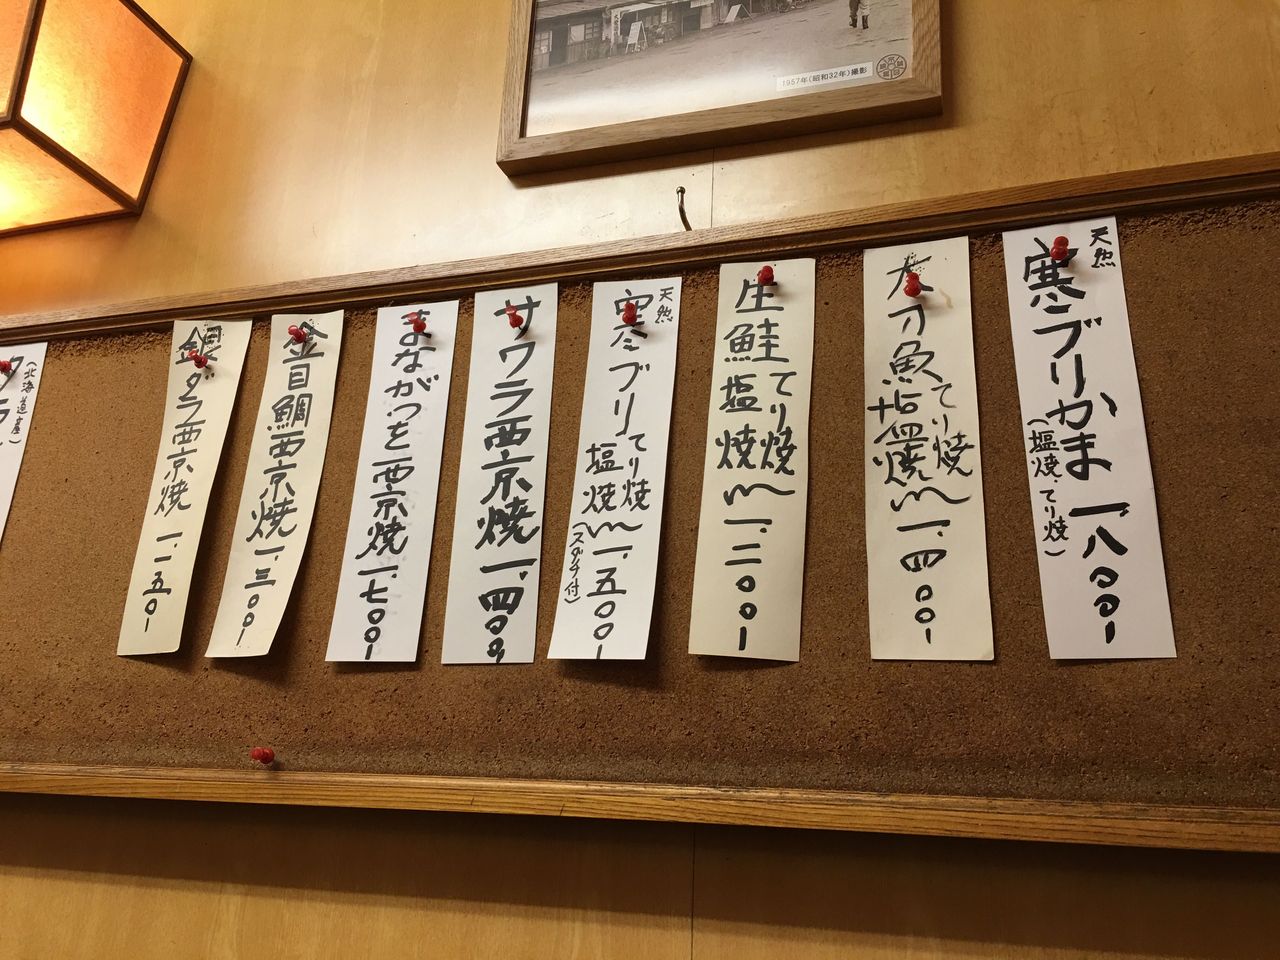 1957年(昭和32年)撮影
天然
寒ブリかま 一、八〇〇ー
(塩焼・てり焼)
太刀魚 てり焼
塩焼 一、四〇〇ー
生鮭 てり焼
塩焼 一、二〇〇ー
天然
寒ブリ てり焼
塩焼 一、五〇〇ー
(スダチ付)
サワラ西京焼 一、四〇〇ー
まながつを西京焼 一、七〇〇ー
金目鯛西京焼 一、三〇〇ー
銀ダラ西京焼 一、一五〇ー
(北海道産)